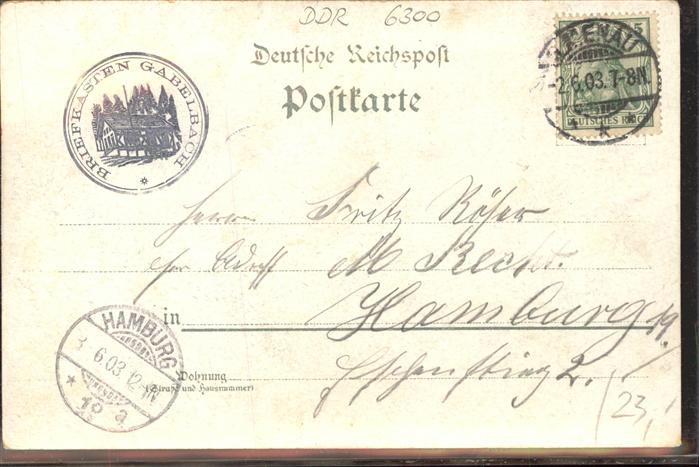 DDR 6300
Deutsche Reichspost
Postkarte
BRIEFKASTEN GABELBACH
ILMENAU
-2.6.03.7-8N.
DEUTSCHES REICH
5
Herrn Fritz Röser
per Adress M Recht.
in Hamburg 19.
Wohnung
(Straße und Hausnummer)
2.
HAMBURG
3.6.03.12-1N
* 19 a
23,